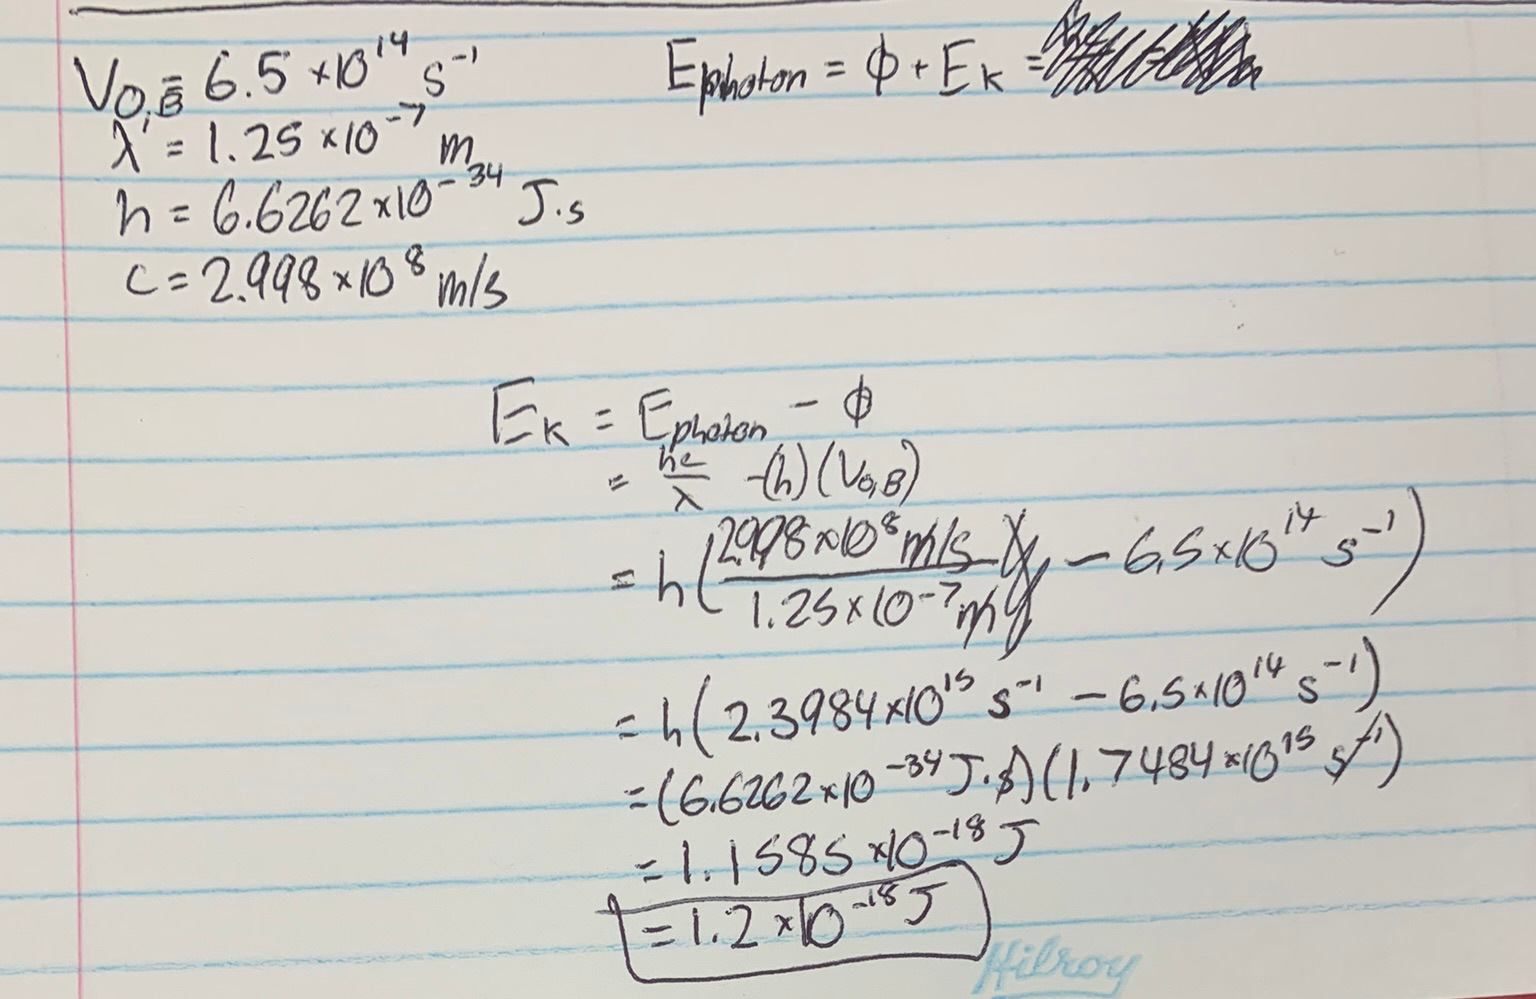 V0,B = 6.5 ×10^14 s^-1
Ephoton = ϕ + Ek =
λ = 1.25 ×10^-7 m
h = 6.6262 ×10^-34 J·s
c = 2.998 ×10^8 m/s
Ek = Ephoton - ϕ
= hc/λ -(h)(V0,B)
= h(2.998×10^8 m/s / 1.25×10^-7 m - 6.5×10^14 s^-1)
= h(2.3984×10^15 s^-1 - 6.5×10^14 s^-1)
=(6.6262×10^-34 J·s)(1.7484×10^15 s^-1)
= 1.1585 ×10^-18 J
= 1.2 ×10^-18 J
Hilroy